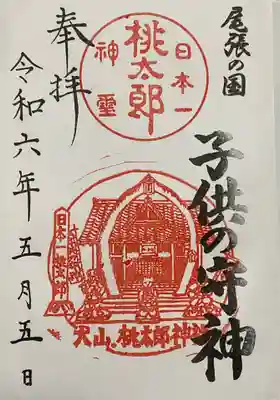 尾張の国
子供の守神
奉拝
日本一
桃太郎
神璽
日本一桃太郎
犬山・桃太郎神社
令和六年五月五日